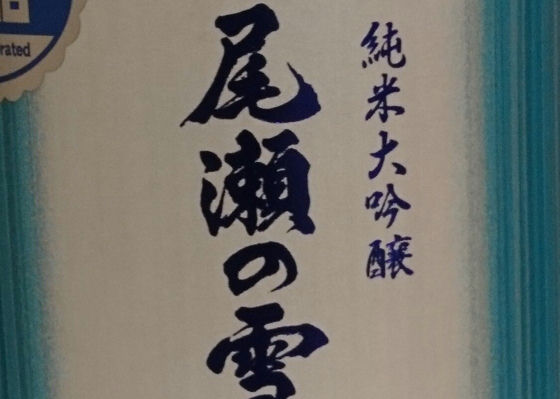 純米大吟醸
尾瀬の雪
rated